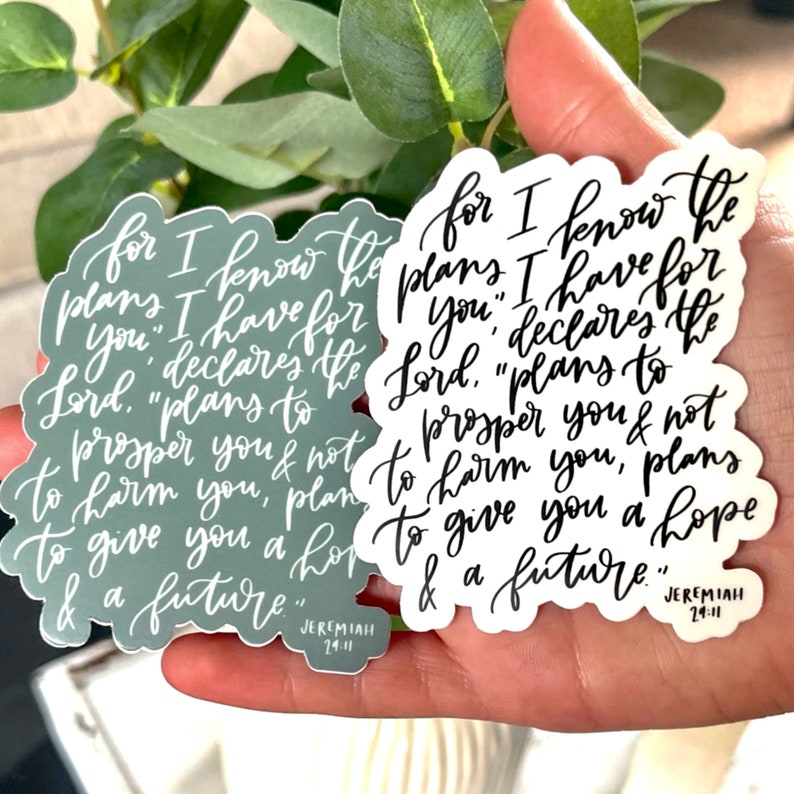 for I know the
plans I have for
you", declares the
Lord, "plans to
prosper you & not
to harm you, plan
to give you a hop
& a future."
JEREMIAH
29:11
for I know the
plans I have for
you", declares the
Lord, "plans to
prosper you & not
to harm you, plans
to give you a hope
& a future."
JEREMIAH
29:11